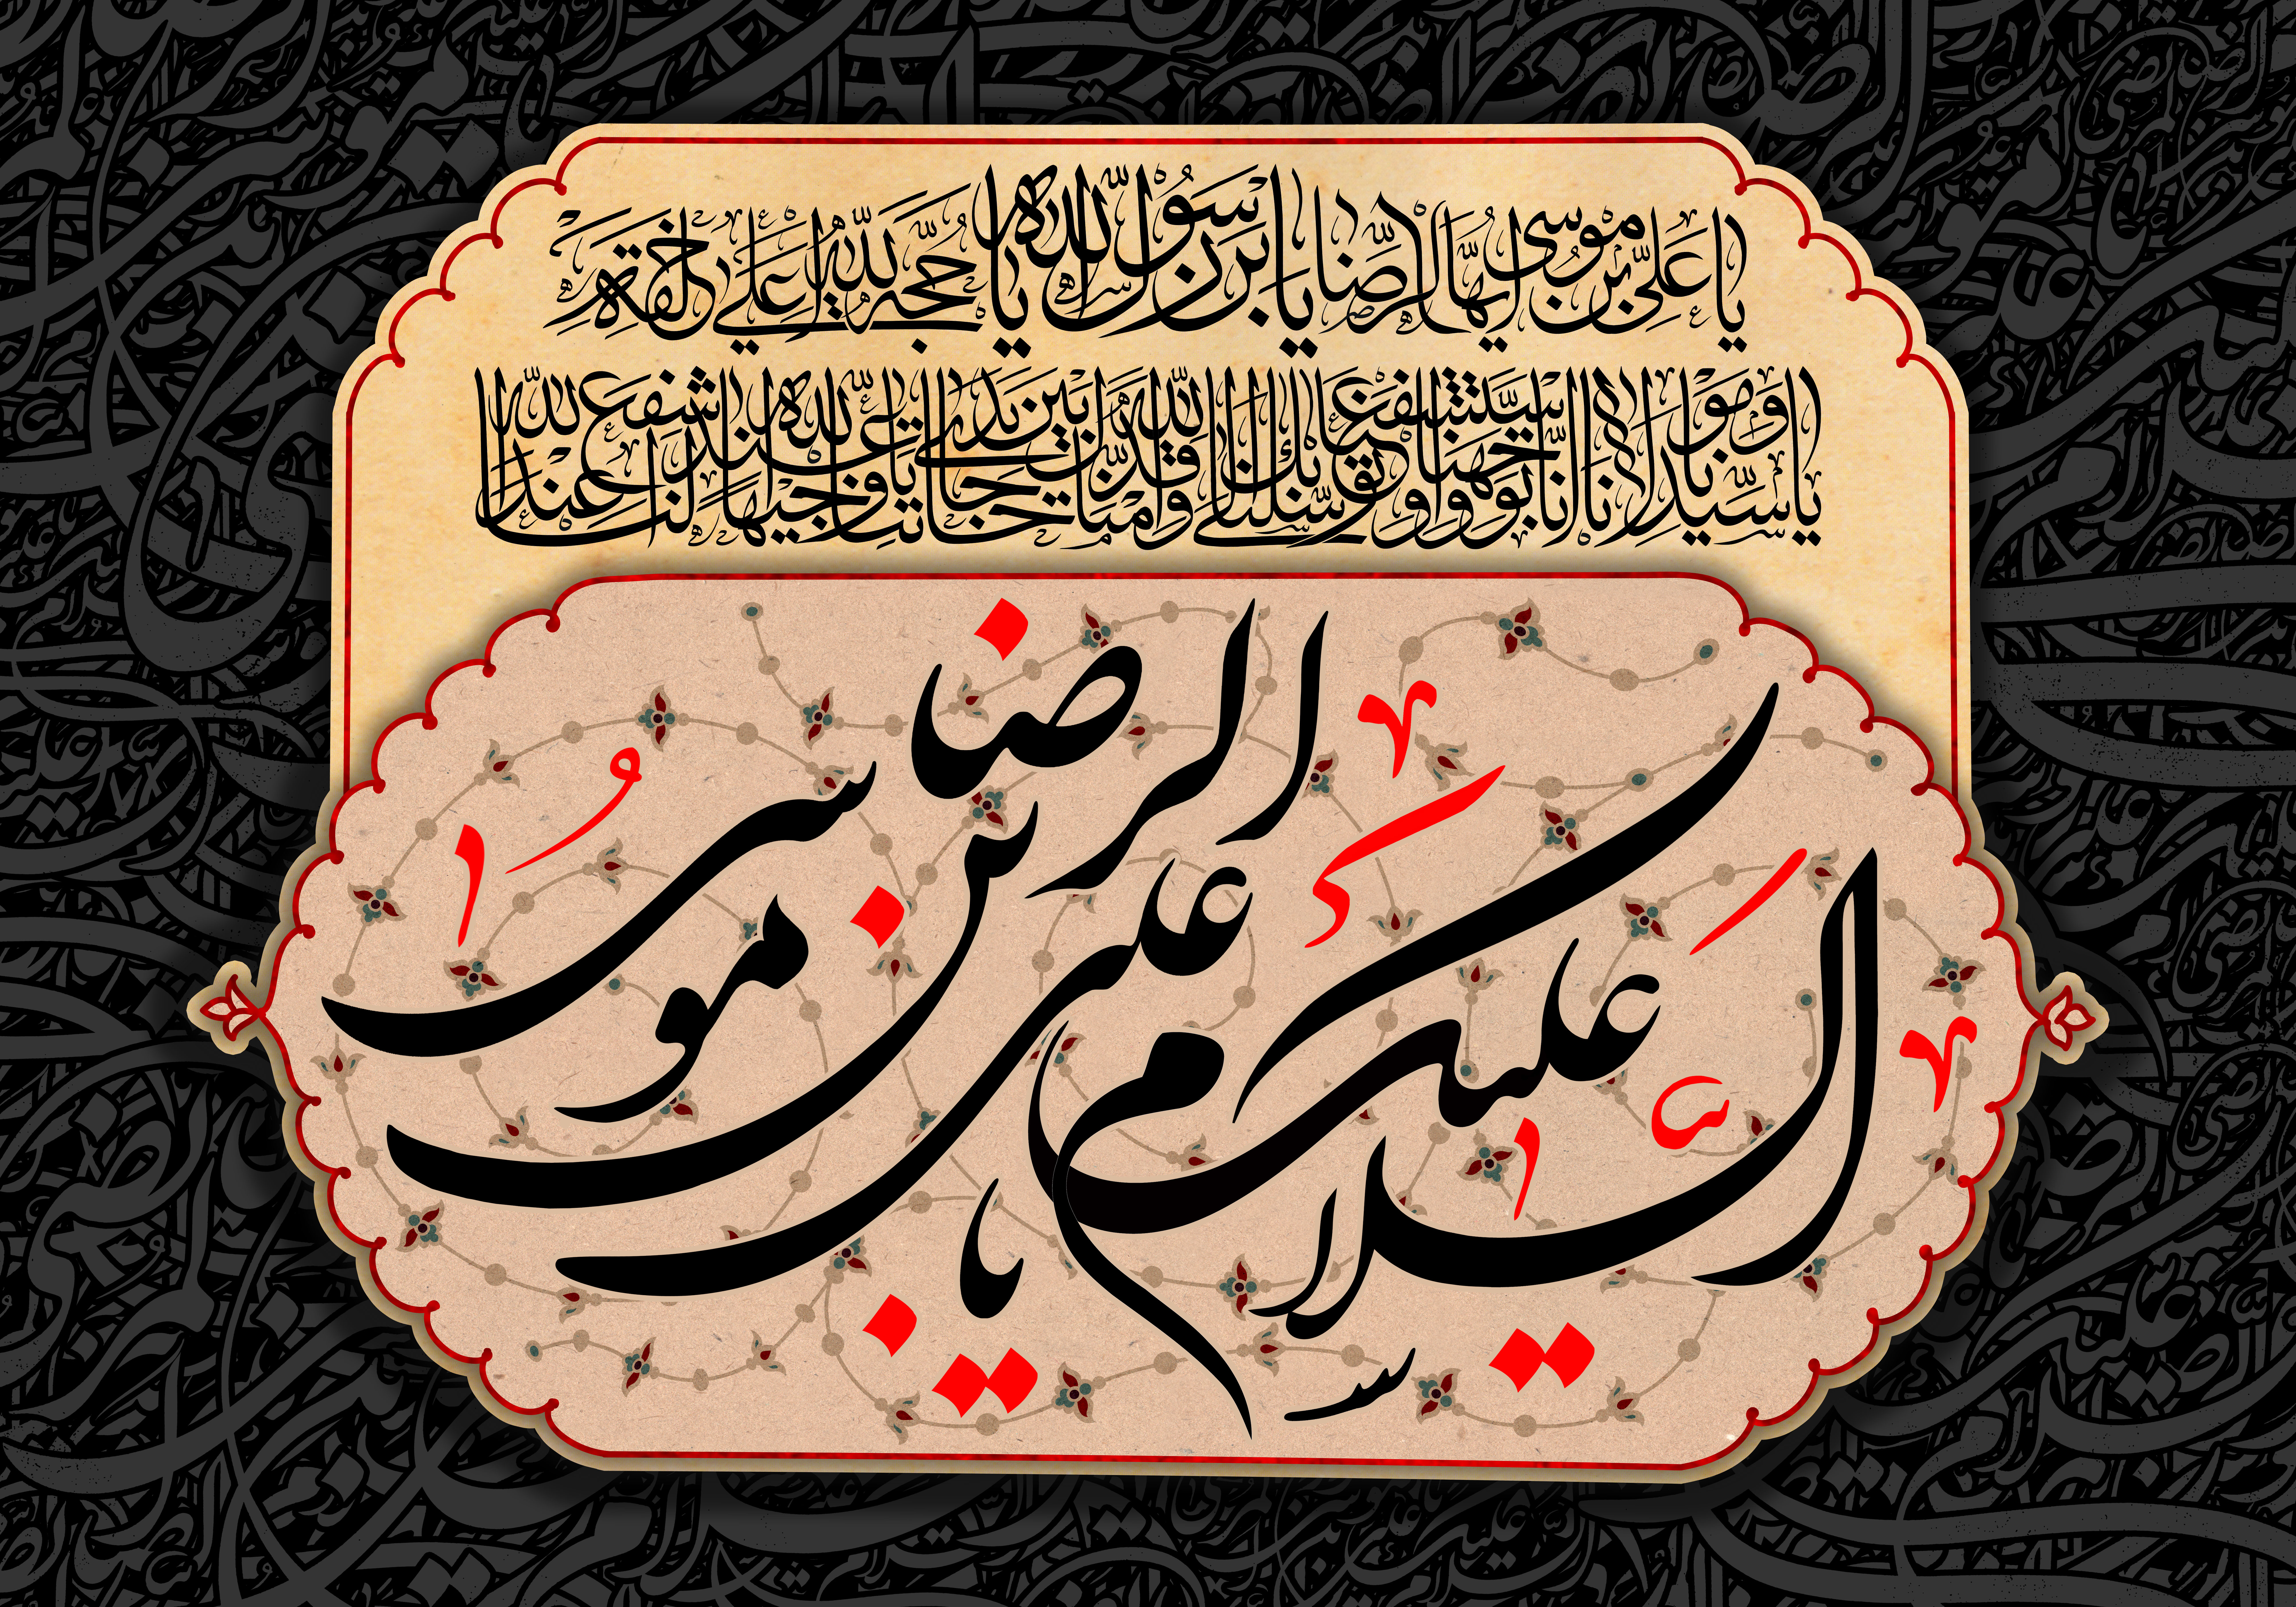 يا علي بن موسى ايها الرضا يا بن رسول الله يا حجة الله على خلقه
يا سيدنا ومولانا انا توجهنا واستشفعنا وتوسلنا بك الى الله وقدمناك بين يدي حاجاتنا يا وجيها عند الله اشفع لنا عند الله
السلام عليك يا علی بن موسی الرضا